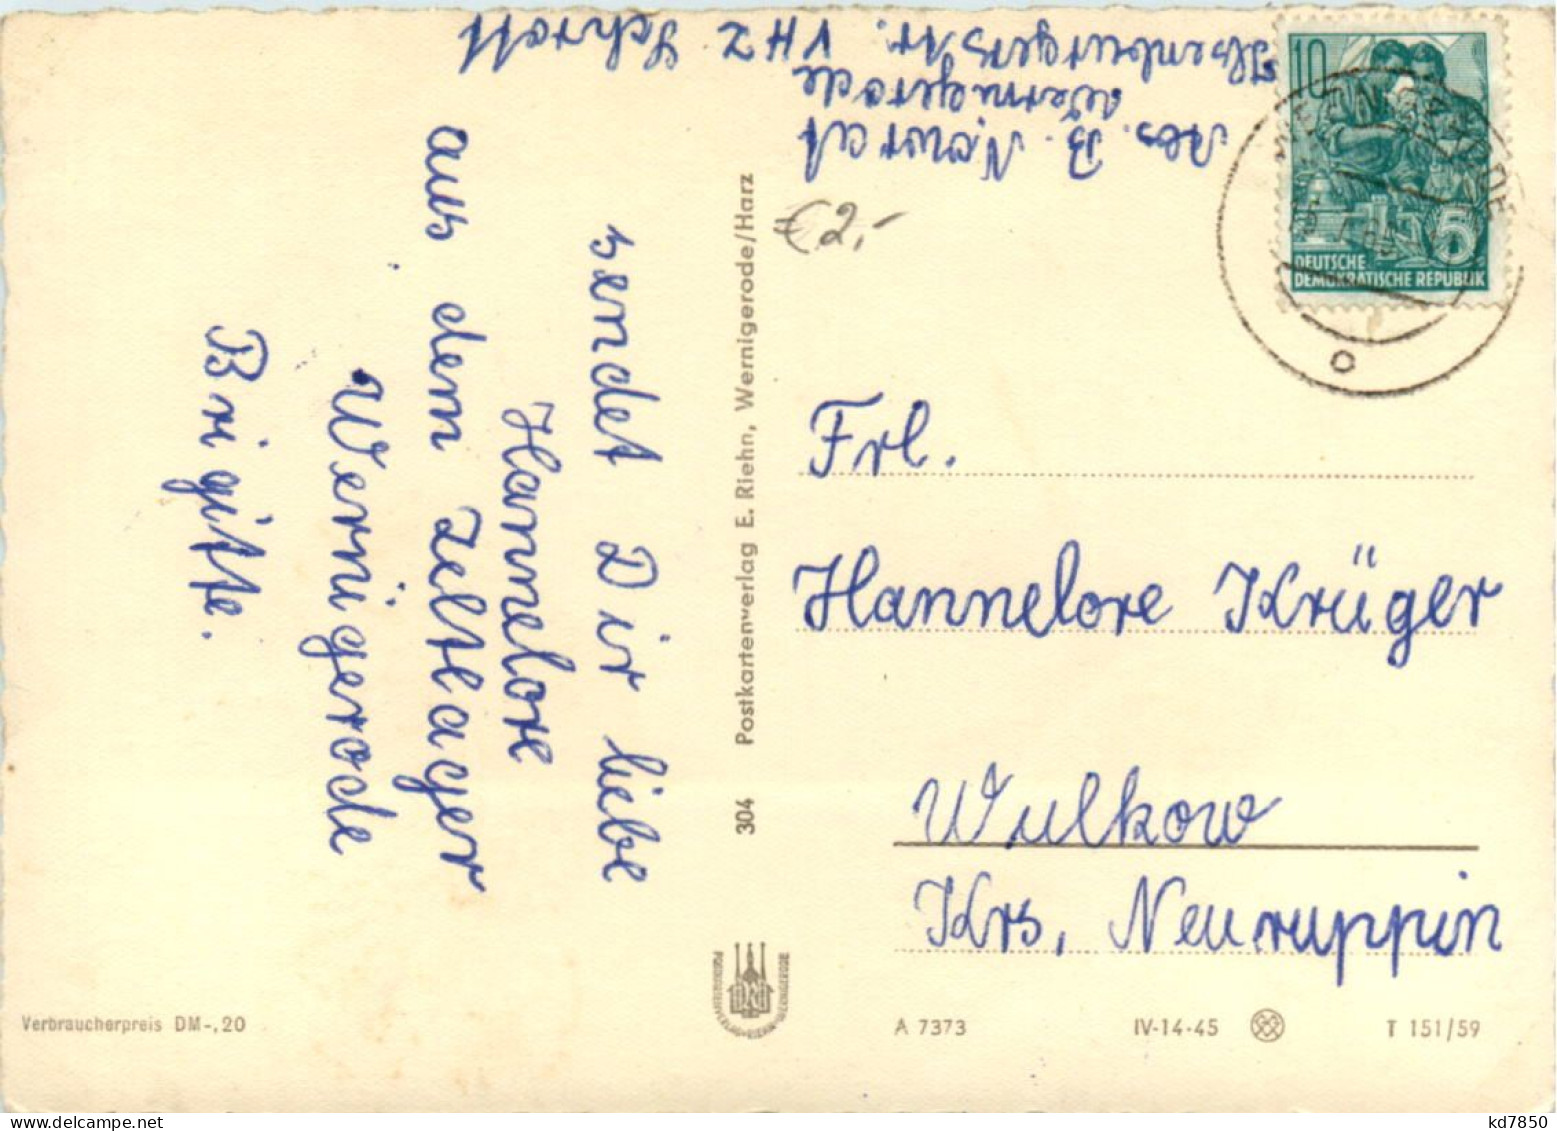 Abs. B. Nawrat
Wernigerode
Ilsenburgerstr. VHZ Schrott
sendet Dir liebe
Hannelore
aus dem Zeltlager
Wernigerode
Brigitte.
304 Postkartenverlag E. Riehn, Wernigerode/Harz
€2,-
10
5
DEUTSCHE
DEMOKRATISCHE REPUBLIK
Frl.
Hannelore Krüger
Wulkow
Krs, Neuruppin
Verbraucherpreis DM-,20
A 7373 IV-14-45 T 151/59
kd7850